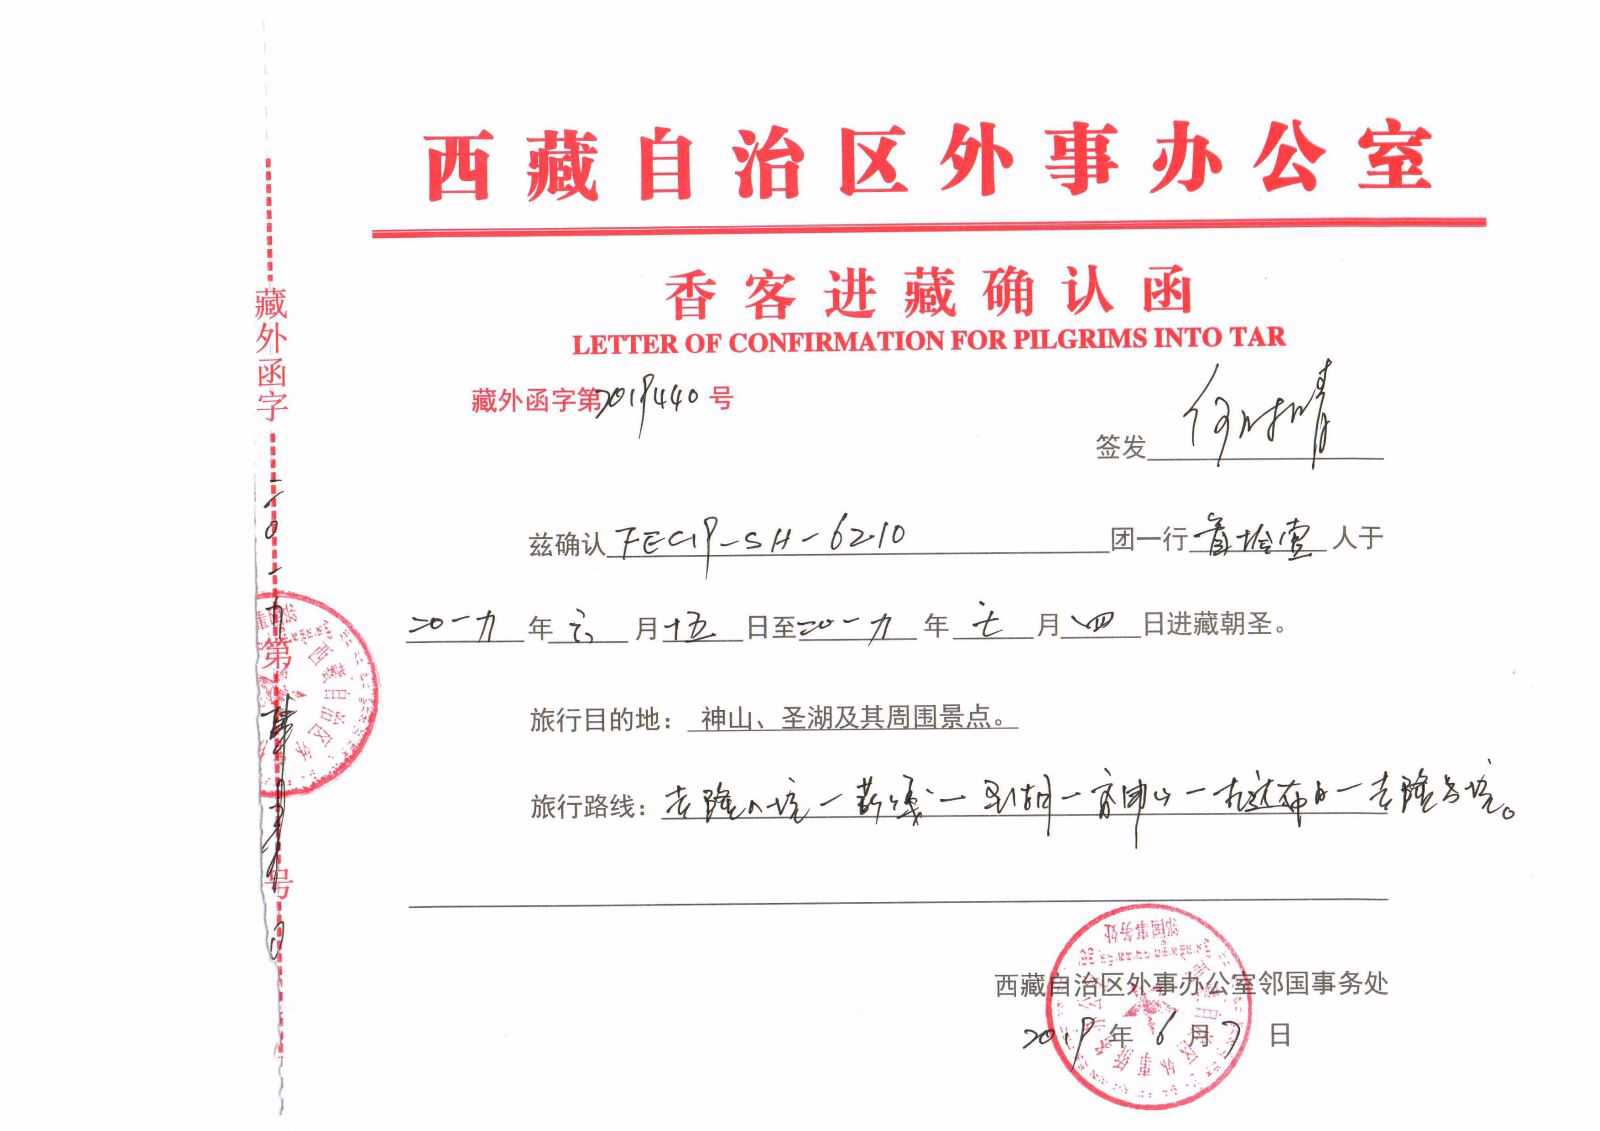 西藏自治区外事办公室
香客进藏确认函
LETTER OF CONFIRMATION FOR PILGRIMS INTO TAR
藏外函字第2019440号
签发
兹确认 FECIP-SH-6210 团一行 拾壹 人于
二〇一九 年 六 月 十五 日至 二〇一九 年 七 月 四 日进藏朝圣。
旅行目的地： 神山、圣湖及其周围景点。
旅行路线： 吉隆口境—萨嘎—圣湖—神山—吉隆出境。
西藏自治区外事办公室邻国事务处
2019 年 6 月 7 日
藏外函字 二〇一九 第 号